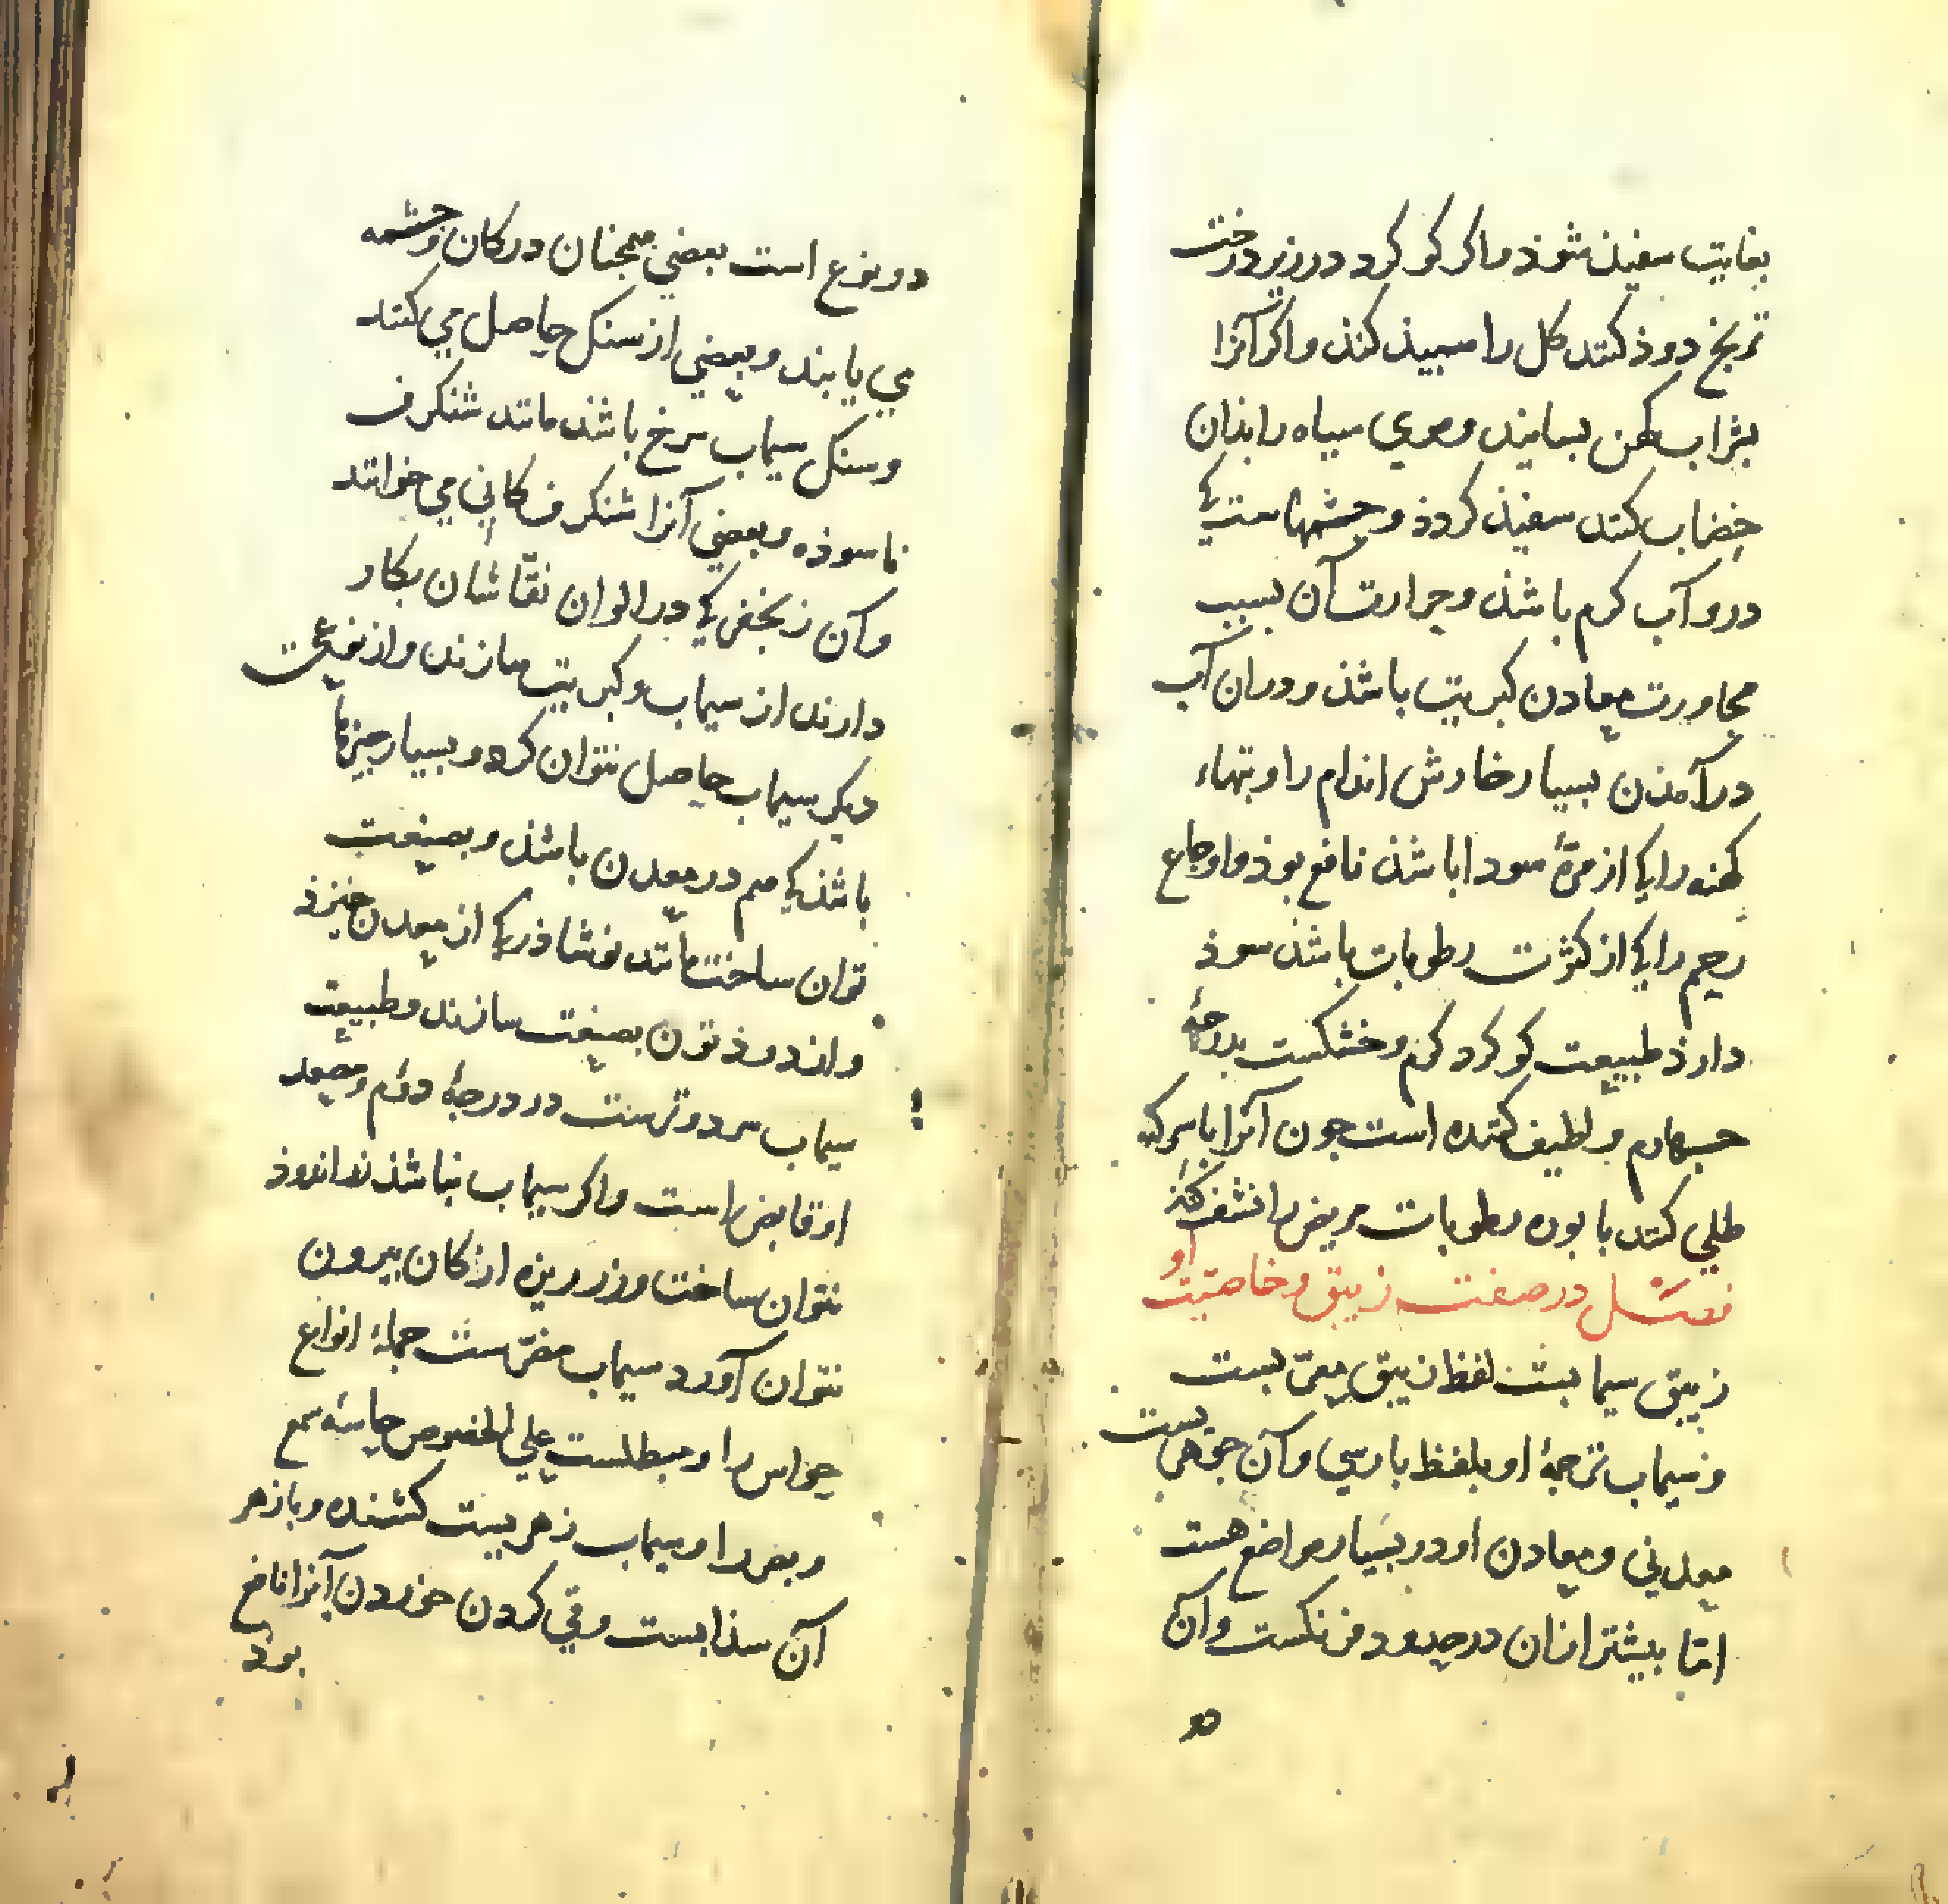 بغایت سفیذ شوذ و اکر کوکرد در زیر درخت
ترنج دوذ کنند کل را سبیذ کند و اکر آنرا
بشراب کهن بسایند و موی سیاه را بذان
خضاب کنند سفیذ کردذ و چشمهاست کی
درو آب کرم باشذ و حرارت آن بسبب
مجاورت معادن کبریت باشذ و در ان آب
در آمذن بسیار خارش اندام را و تبهاء
کهنه را کی از مرّهٔ سودا باشذ نافع بوذ و اوجاع
رحم را کی از کثرت رطوبات باشذ سوذ
دارذ طبیعت کوکرد کرم و خشکست بدرجهٔ
جهارم و لطیف کننده است جون آنرا با سرکه
طلی کنند با بوره رطوبات مریض را نشف کند
فصل در صفت زیبق و خاصیّت او
زیبق سیمابست لفظ زیبق معرّبست
و سیماب ترجمهٔ او بلفظ بارسی و آن جوهریست
معدنی و معادن او در بسیار مواضع هست
امّا بیشتر ازان در حدود فرنکست و آن
دو
دو نوع است بعضی همجنان در کان و جشمه
می یابند و بعضی از سنک حاصل می کنند
و سنک سیماب سرخ باشذ مانند شنکرف
ناسوذه و بعضی آنرا شنکرف کانی می خوانند
و آن زنجفر کی در الوان نقّاشان بکار
دارند از سیماب و کبریت سازند و از نوعی
دیکر سیماب حاصل نتوان کرد و بسیار جیزها
باشذ کی هم در معدن باشذ و بصنعت
توان ساخت مانند نوشاذر کی از معدن خیزذ
و از دوذ تون بصنعت سازند و طبیعت
سیماب سرد و ترست در درجهٔ دوّم و مصعد
او قابض است و اکر سیماب نباشذ زر اندوذ
نتوان ساخت و زر ریزه از کان بیرون
نتوان آورد سیماب مضرّست جملهٔ انواع
حواس را و مبطلست علی الخصوص حاسهٔ سمع
و بصر را و سیماب زهریست کشنده و بازهر
آن سذابست و قی کردن خوردن آنرا نافع
بوذ